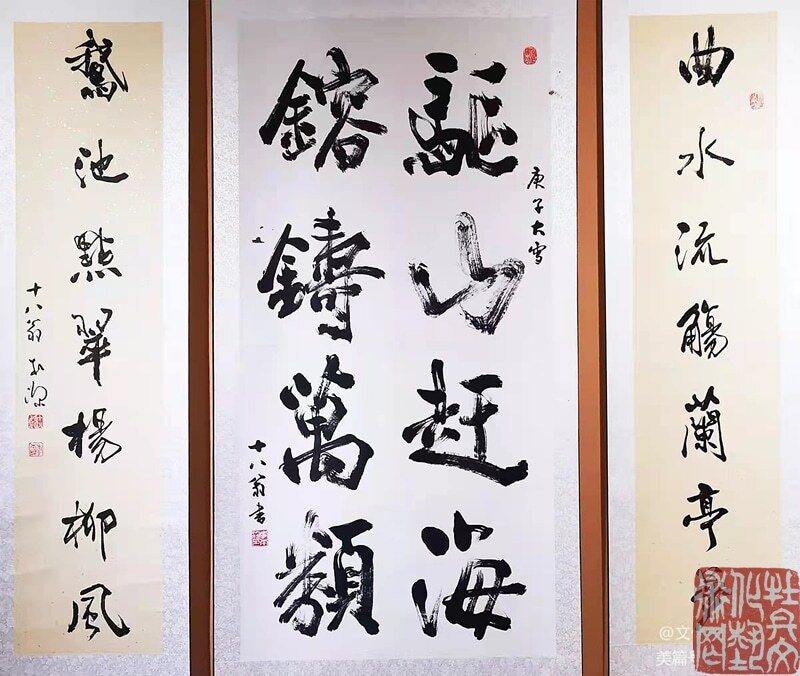 曲水流觴蘭亭
庚子大雪
驅山赶海
鎔鑄萬類
十八翁書
鵝池點翠楊柳風
十八翁
@文
美篇